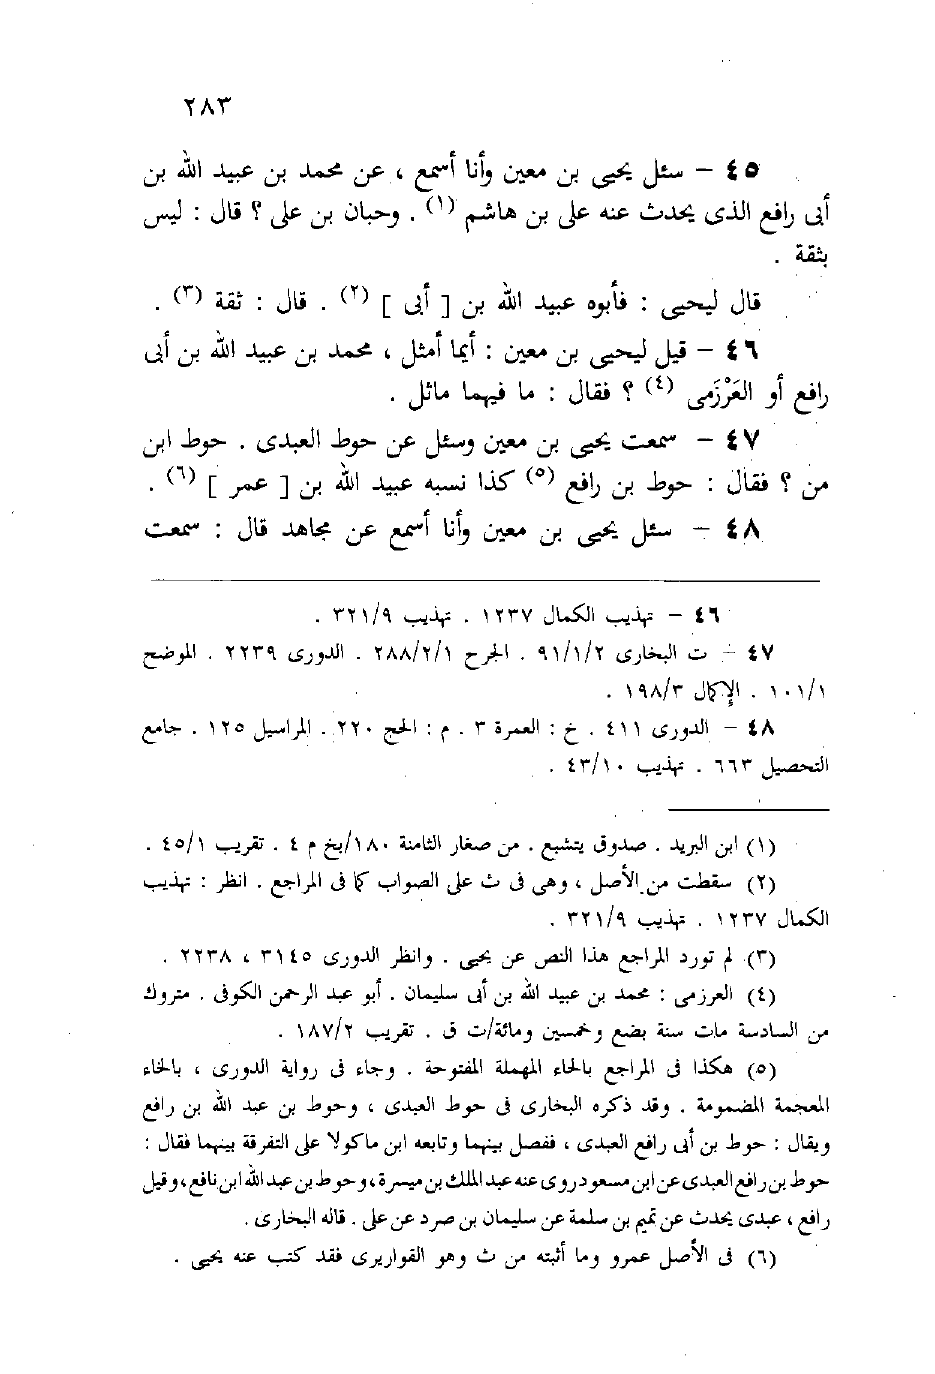 ٢٨٣
٤٥ – سئل يحيى بن معين وأنا أسمع ، عن محمد بن عبيد الله بن
أبى رافع الذى يحدث عنه على بن هاشم (١) . وحبان بن على ؟ قال : ليس
بثقة .
قال ليحيى : فأبوه عبيد الله بن [ أبى ] (٢) . قال : ثقة (٣) .
٤٦ – قيل ليحيى بن معين : أيما أمثل ، محمد بن عبيد الله بن أبى
رافع أو العَرْزَمى (٤) ؟ فقال : ما فيهما ماثل .
٤٧ – سمعت يحيى بن معين وسئل عن حوط العبدى . حوط ابن
من ؟ فقال : حوط بن رافع (٥) كذا نسبه عبيد الله بن [ عمر ] (٦) .
٤٨ – سئل يحيى بن معين وأنا أسمع عن مجاهد قال : سمعت
٤٦ – تهذيب الكمال ١٢٣٧ . تهذيب ٣٢١/٩ .
٤٧ – ت البخارى ٩١/١/٢ . الجرح ٢٨٨/٢/١ . الدورى ٢٢٣٩ . الموضح
١٠١/١ . الإكمال ١٩٨/٣ .
٤٨ – الدورى ٤١١ . خ : العمرة ٣ . م : الحج ٢٢٠ . المراسيل ١٢٥ . جامع
التحصيل ٦٦٣ . تهذيب ٤٣/١٠ .
(١) ابن البريد . صدوق يتشيع . من صغار الثامنة ١٨٠/بخ م ٤ . تقريب ٤٥/١ .
(٢) سقطت من الأصل ، وهى فى ث على الصواب كما فى المراجع . انظر : تهذيب
الكمال ١٢٣٧ . تهذيب ٣٢١/٩ .
(٣) لم تورد المراجع هذا النص عن يحيى . وانظر الدورى ٣١٤٥ ، ٢٢٣٨ .
(٤) العرزمى : محمد بن عبيد الله بن أبى سليمان . أبو عبد الرحمن الكوفى . متروك
من السادسة مات سنة بضع وخمسين ومائة/ت ق . تقريب ١٨٧/٢ .
(٥) هكذا فى المراجع بالحاء المهملة المفتوحة . وجاء فى رواية الدورى ، بالخاء
المعجمة المضمومة . وقد ذكره البخارى فى حوط العبدى ، وحوط بن عبد الله بن رافع
ويقال : حوط بن أبى رافع العبدى ، ففصل بينهما وتابعه ابن ماكولا على التفرقة بينهما فقال :
حوط بن رافع العبدى عن ابن مسعود روى عنه عبد الملك بن ميسرة ، وحوط بن عبد الله ابن نافع ، وقيل
رافع ، عبدى يحدث عن تميم بن سلمة عن سليمان بن صرد عن على . قاله البخارى .
(٦) فى الأصل عمرو وما أثبته من ث وهو القواريرى فقد كتب عنه يحيى .